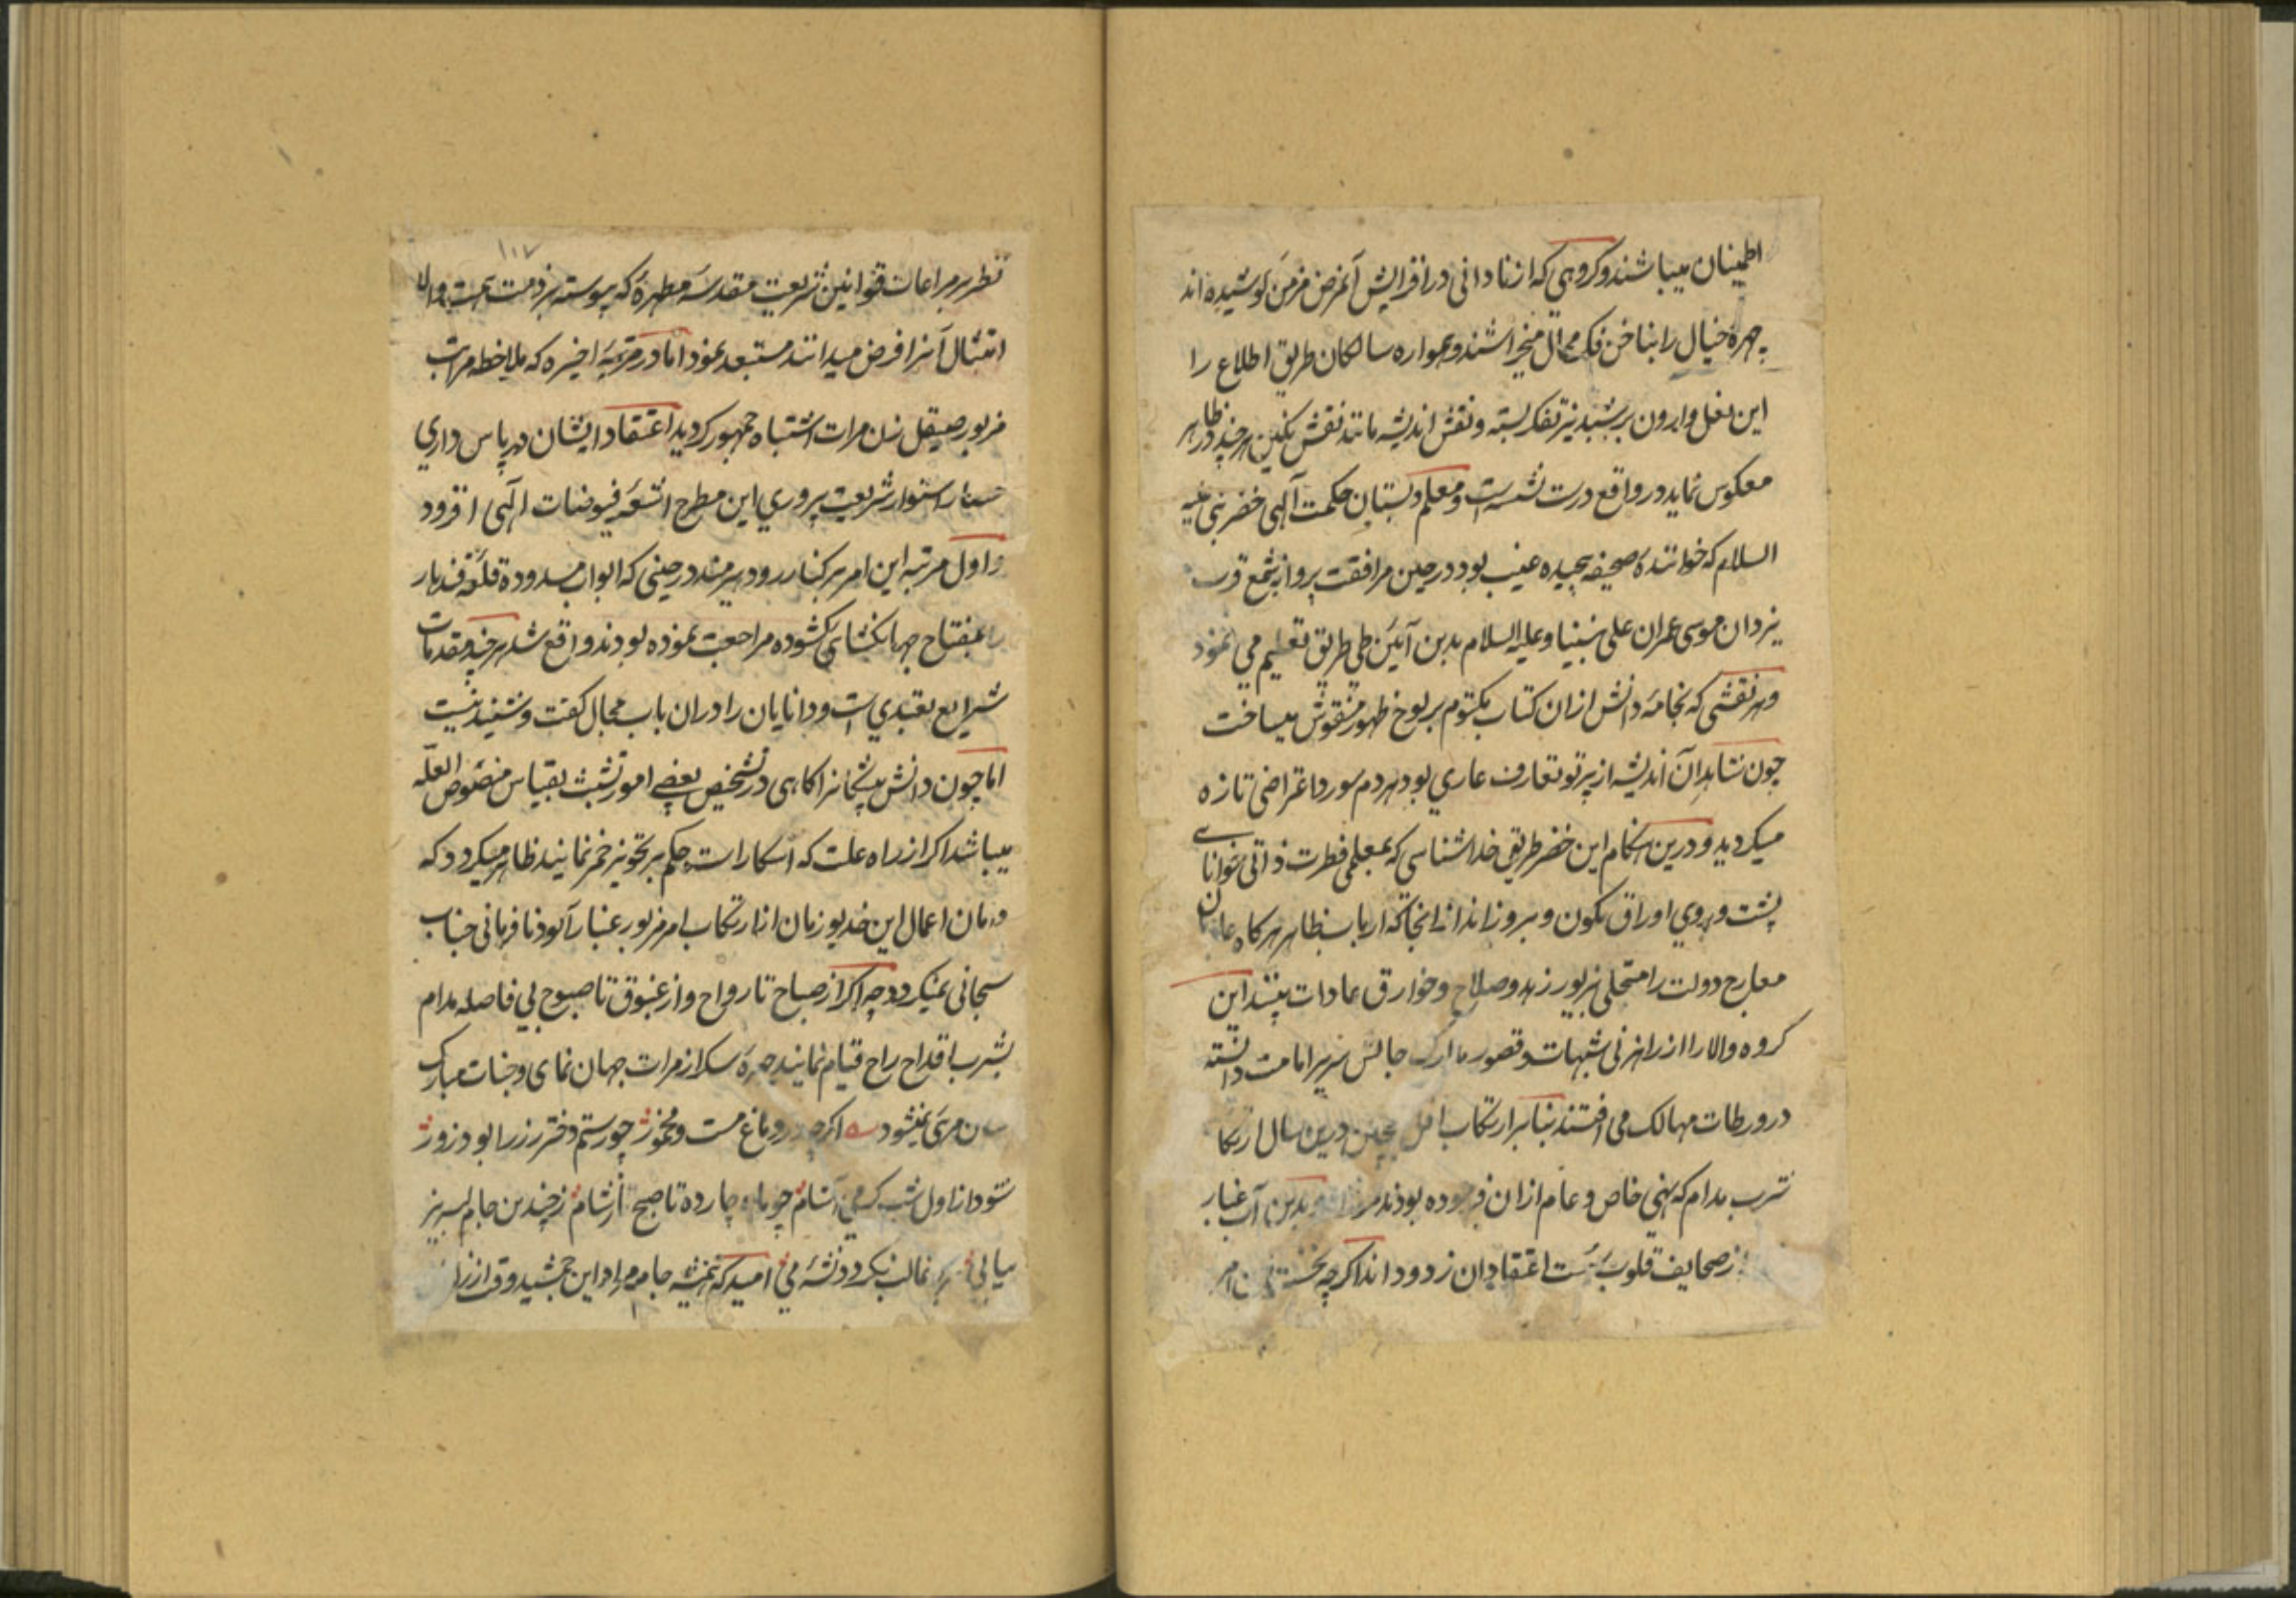 اطمینان میباشند و کروهی که از نادانی در افزایش آنمرض مزمن کوشیده اند
چهره خیال را بناخن فکر محال میخراشند و همواره سالکان طریق اطلاع را
این نعل وارون بر شبدیز تفکر بسته و نقش اندیشه مانند نقش نکین هر چند در ظاهر
معکوس نماید در واقع درست نشسته است و معلم دبستان حکمت آلهی خضر نبی علیه
السلام که خوانندهٔ صحیفه پیچیده غیب بود در حین مرافقت پروانه شمع قرب
یزدان موسی عمران علی نبینا و علیه السلام بدین آئین طی طریق تعلیم می نمود
و هر نقشی که بخامهٔ دانش از ان کتاب مکتوم بر لوح ظهور منقوش میساخت
چون شاهد آن اندیشه از پرتو تعارف عاری بود هر دم مورد اعتراضی تازه
میکردید و درین هنکام این خضر طریق خداشناسی که بمعلمی فطرت ذاتی خوانای
پشت و روی اوراق کمون و بروز اند از انجا که ارباب ظاهر هر کاه عارجان
معارج دولت را متحلی بزیور زهد و صلاح و خوارق عادات بینند این
کروه والا را از راهزنی شبهات و قصور مدارک جالس سریر امامت دانسته
در ورطات مهالک می افتند بنابر ارتکاب درین سال ارتکاب
شرب مدام که نهی خاص و عام از ان فرموده بودند بدین آب غبار
از صحایف قلوب سست اعتقادان زدوده اند اکرچه نخستین امر
۱۱۷
نظر بر مراعات قوانین شریعت مقدسه مطهره که پیوسته بر ذمت همت والا
امتثال آنرا فرض میدانند مستبعد نمود اما در مرتبهٔ اخیره که ملاحظه مراتب
مزبور صیقل زن مرات اشتباه جمهور کردید اعتقاد ایشان در پاس داری
حصار استوار شریعت پروری این مطرح اشعهٔ فیوضات الهی افزود
و اول مرتبه این امر بر کنار رود هیرمند در حینی که ابواب مسدوده قلعه قندهار
را بمفتاح جهانکشای کشوده مراجعت نموده بودند واقع شد هر چند مقدمات
شرایع تعبدی است و دانایان را در ان باب مجال کفت و شنید نیست
اما چون دانش پیشکانرا کاهی در تشخیص بعضی امور تشبث بقیاس منصوص العله
میباشد اکر از راه علت که اسکار است حکم بر تجویز خمر نمایند ظاهر میکردد که
دامان اعمال این خدیو زمان از ارتکاب امر مزبور غبار آلود نافرمانی جناب
سبحانی نمیکردد چه اکر از صباح تا رواح و از غبوق تا صبوح بی فاصله مدام
بشرب اقداح راح قیام نمایند چهره سکر از مرات جهان نمای وجنات مبارک
شان مرئی نمیشود اکرچه در دماغ مست و مخمور چو رستم دختر رز را بود زور
شود از اول شب کر می آشام چو ماه چارده تا صبح از شام ز چندین جام لبریز
پیاپی بر او غالب نکردد نشه می امید که همیشه جام مراد این جمشید وقت از